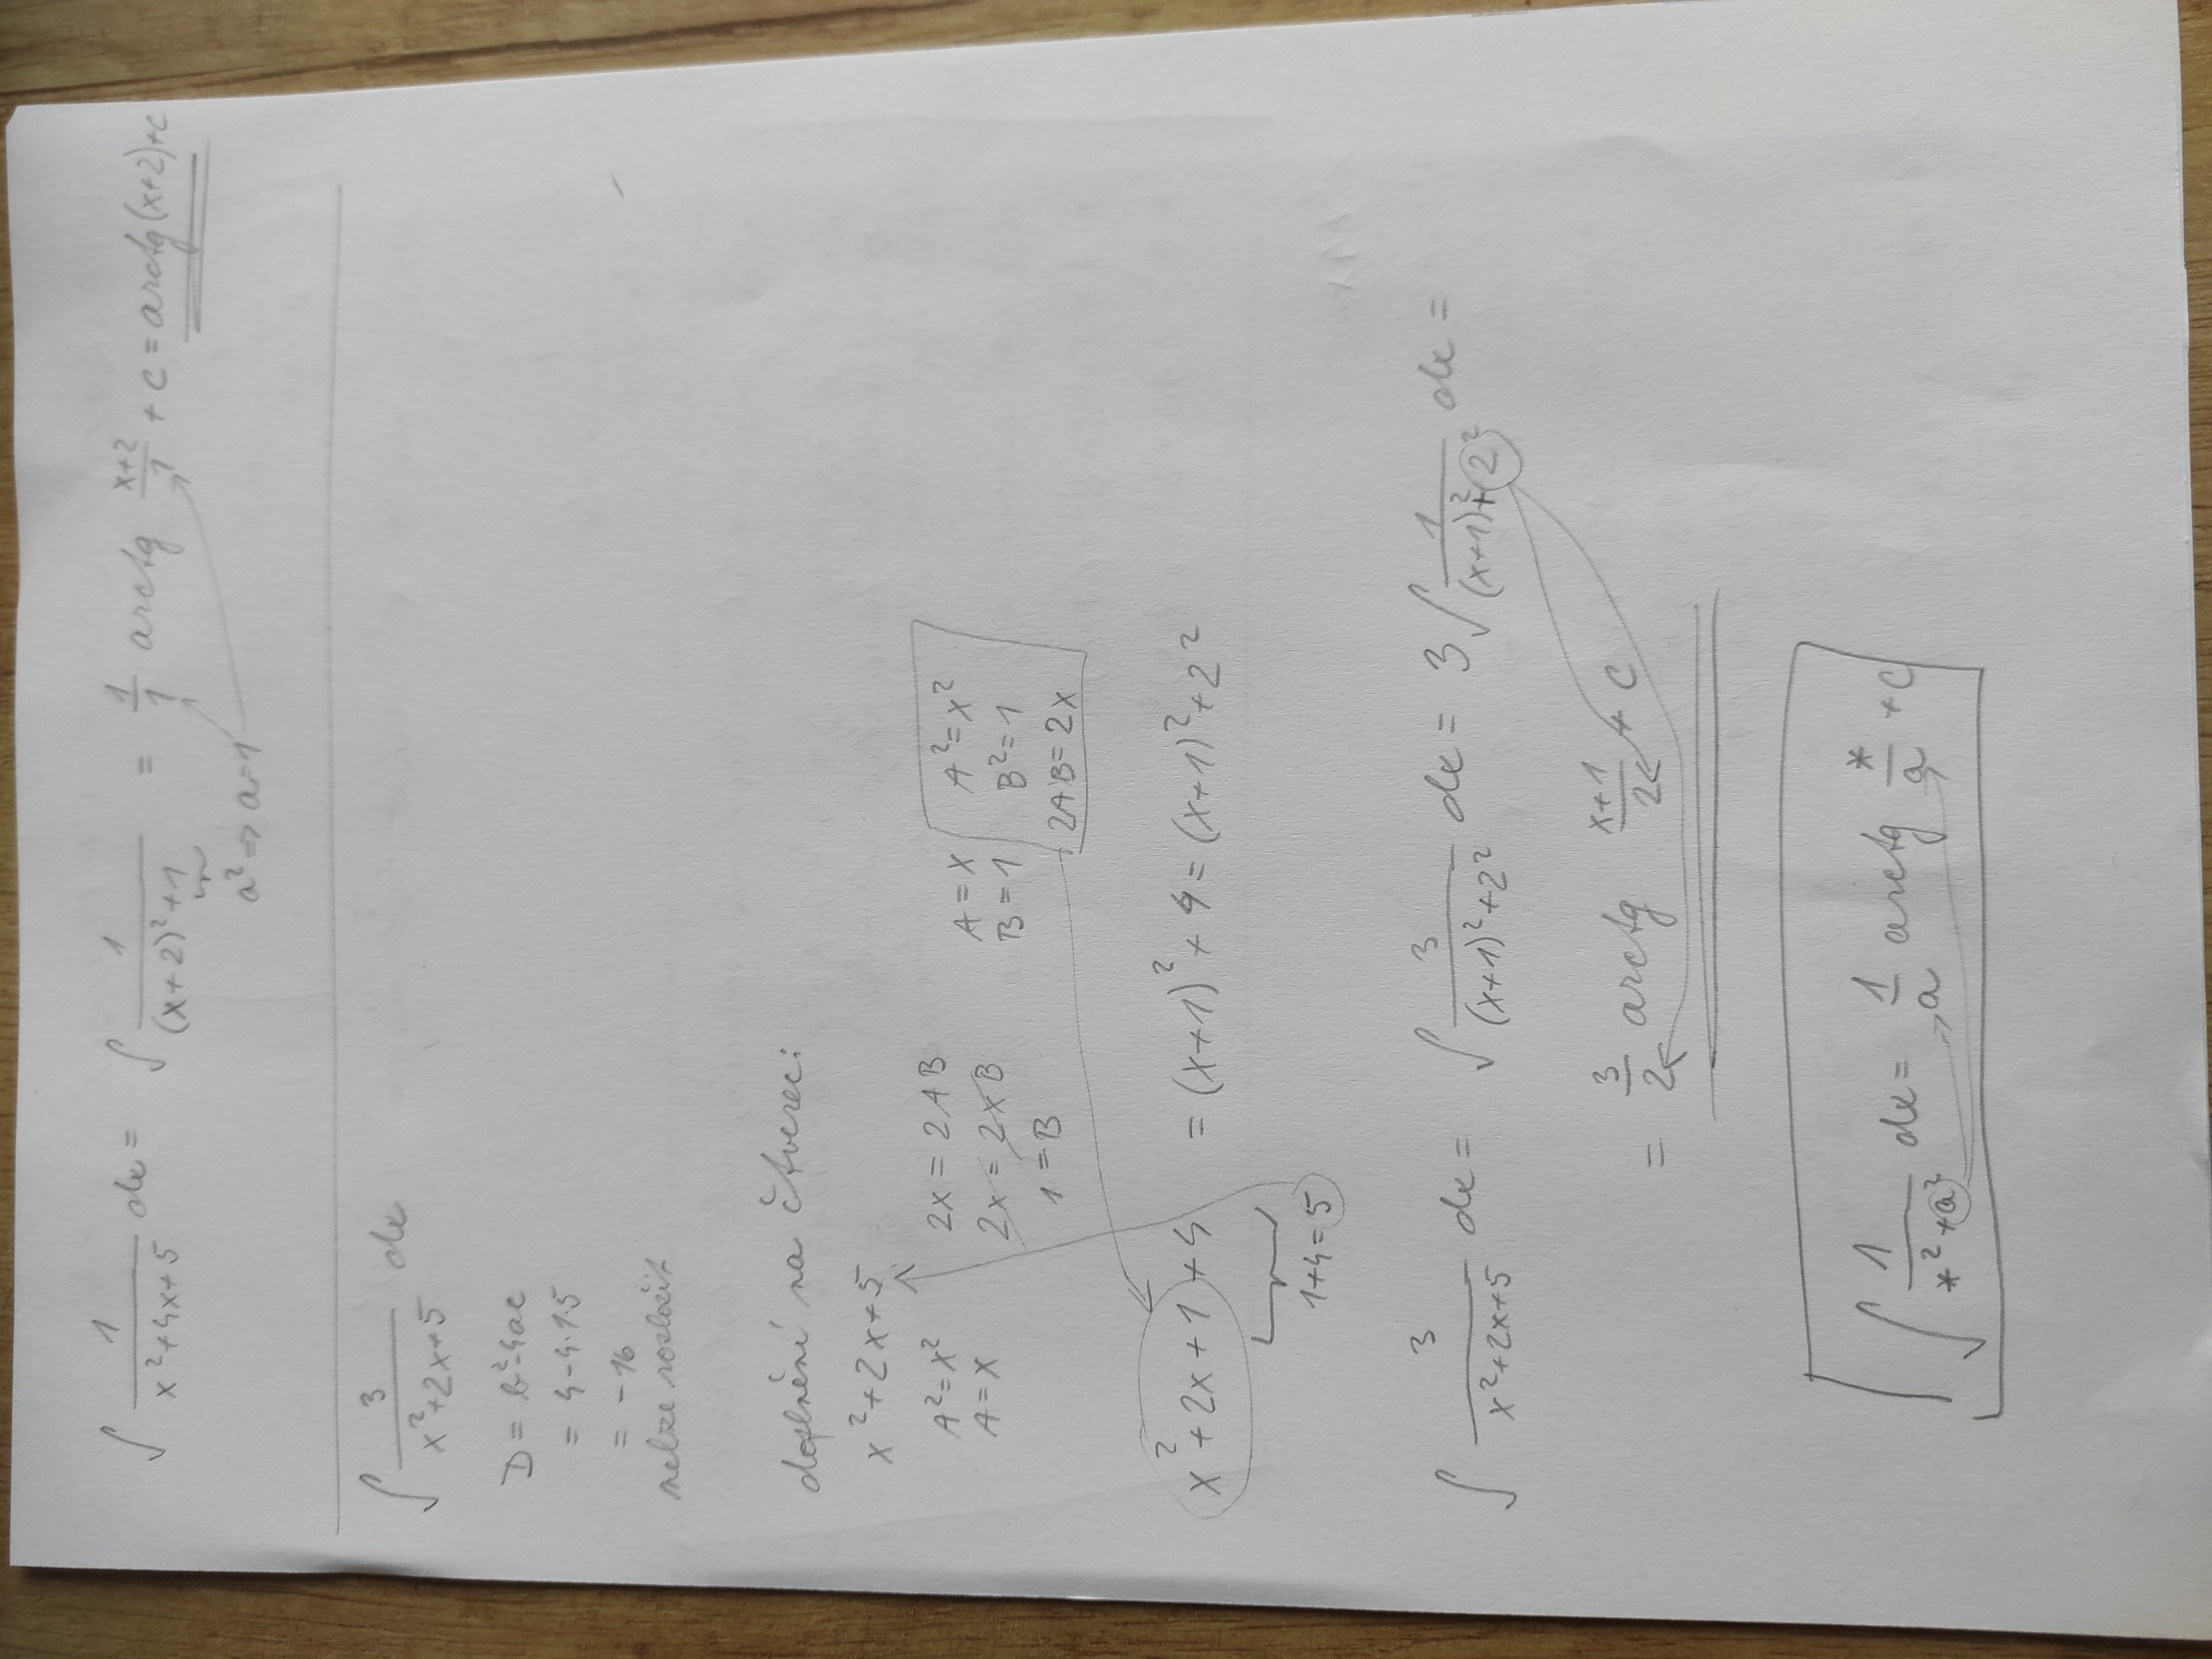 ∫ 1/(x²+4x+5) dx = ∫ 1/((x+2)²+1) = 1/1 arctg (x+2)/1 + C = arctg(x+2)+C
a² => a=1
∫ 3/(x²+2x+5) dx
D = b²-4ac
= 4-4·1·5
= -16
nelze rozložit
doplnění na čtverec:
x²+2x+5
A²=x² 2x = 2AB A=x A²=x²
A=x 2x = 2xB B=1 B²=1
1=B 2AB=2x
x²+2x+1+4 = (x+1)²+4 = (x+1)²+2²
1+4=5
∫ 3/(x²+2x+5) dx = ∫ 3/((x+1)²+2²) dx = 3 ∫ 1/((x+1)²+2²) dx =
= 3/2 arctg (x+1)/2 + C
∫ 1/(*²+a²) dx = 1/a arctg */a + C